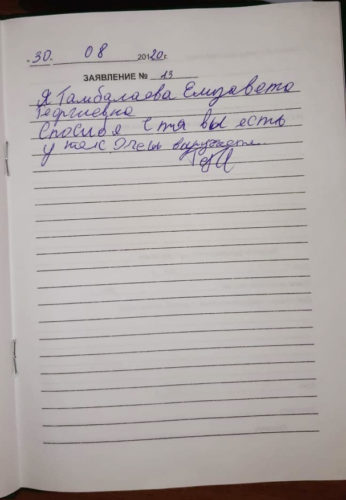 30. 08 2020г.
ЗАЯВЛЕНИЕ № 13
Я Гамбалаева Елизавета
Георгиевна
Спосибо что вы есть
у нас Очень выручаете.